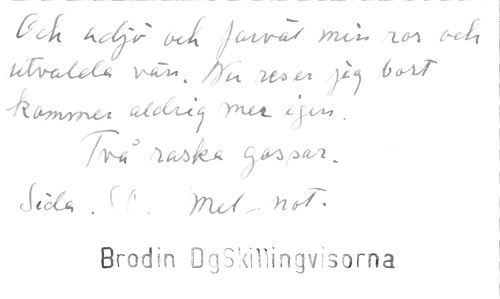 Och adjö och farväl min ros och
utvalda vän. Nu reser jag bort
kommer aldrig mer igen.
Två raska gossar.
Sida. Mel-not.
Brodin DgSkillingvisorna